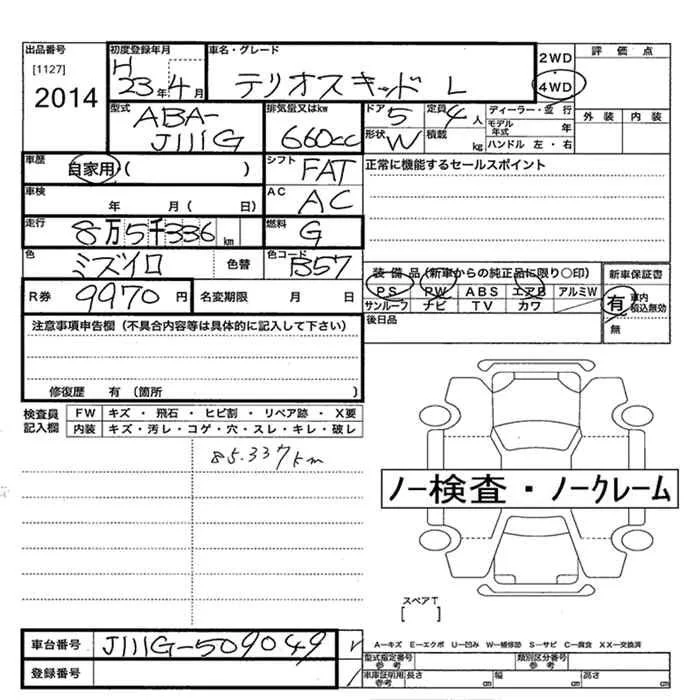 出品番号 初度登録年月 車名・グレード 2WD 評 価 点
[1127] H 4WD
2014 23年 4月 テリオスキッド L 外 装 内 装
型式 排気量又はkw ドア 定員 ディーラー・並 行
ABA- 5 4人 モデル年式 年
J111G 660cc 形状 W 積載 kg ハンドル 左・右
車歴 自家用・( ) シフト FAT 正常に機能するセールスポイント
車検 年 月( 日) AC AC
走行 8万5千336km 燃料 G
色 ミズイロ 色替 色コード B57 装 備 品(新車からの純正品に限り○印) 新車保証書
R券 9970円 名変期限 月 日 PS PW ABS エアB アルミW 有 車内積込無効
サンルーフ ナビ TV カワ
注意事項申告欄(不具合内容等は具体的に記入して下さい) 後日品 無
修復歴 有(箇所 )
検査員 FW キズ ・ 飛石 ・ ヒビ割 ・ リペア跡 ・ X要
記入欄 内装 キズ・汚レ・コゲ・穴・スレ・キレ・破レ
85.337km
ノー検査・ノークレーム
スペアT
[ ]
車台番号 J111G-509049 A―キズ E―エクボ U―凹み W―補修跡 S―サビ C―腐食 XX―交換済
型式指定番号 参考 類別区分番号 参考
登録番号 車庫証明用 参考 長さ cm 幅 cm 高さ cm